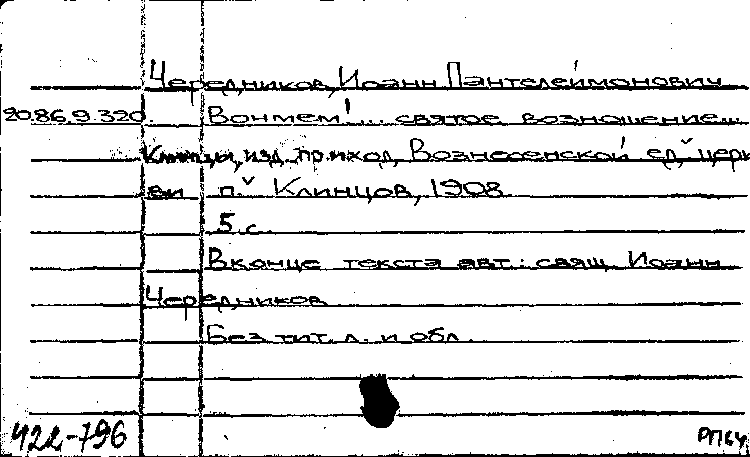 Чередников, Иоанн Пантелеймонович
20.86.9.320. Вонмем!... святое возношение...
Клинцы, изд. приход. Вознесенской ед. церк
ви п. Клинцов, 1908
5 с.
В конце текста авт.: свящ. Иоанн
Чередников
Без тит. л. и обл.
422-796